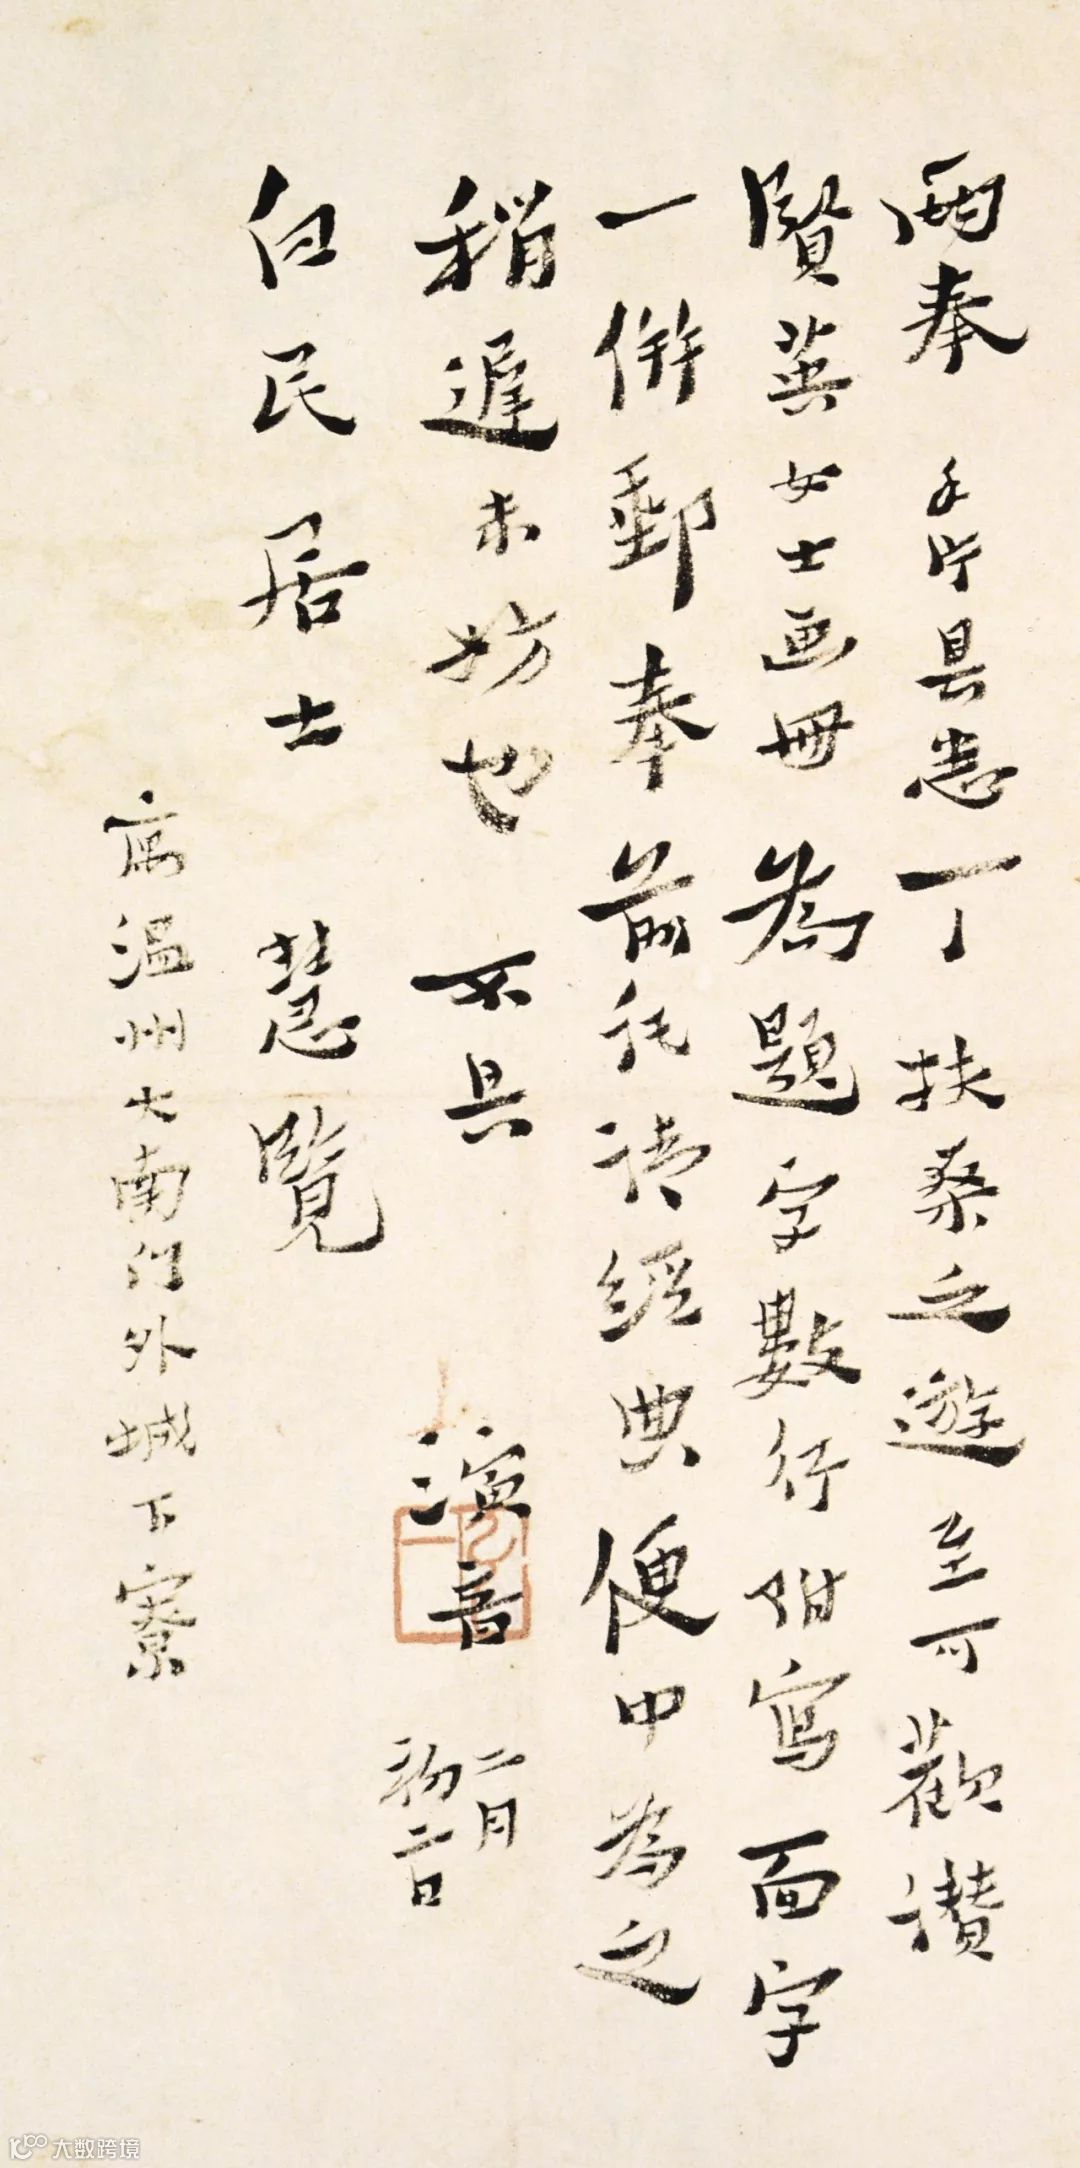 兩奉 手片具悉一丁扶桑之遊至可歡讚
賢英女士画冊為題字數行附寫面字
一併郵奉前託請經典便中為之
稍遲未妨也 不具 演音 二月初二日
白民居士 慧覽
寓温州大南门外城下寮
大数跨境